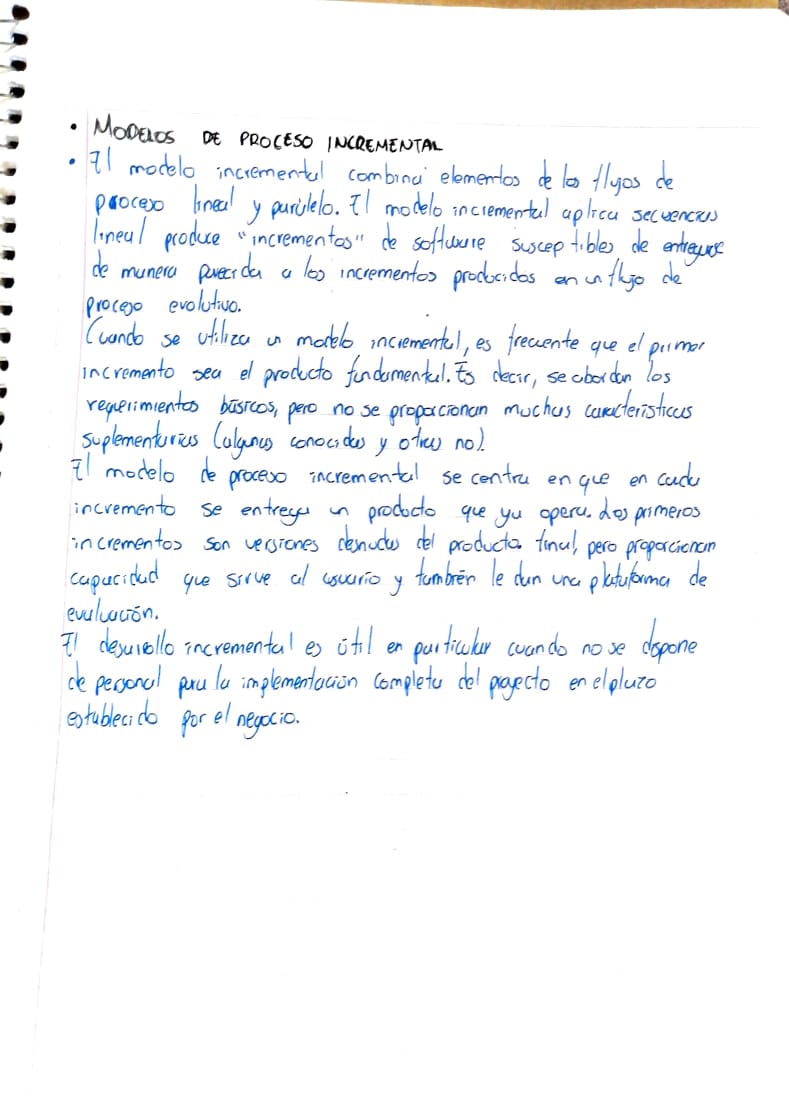 • MODELOS DE PROCESO INCREMENTAL
• El modelo incremental combina elementos de los flujos de
proceso lineal y paralelo. El modelo incremental aplica secuencias
lineal produce "incrementos" de software susceptibles de entregarse
de manera parecida a los incrementos producidos en un flujo de
proceso evolutivo.
Cuando se utiliza un modelo incremental, es frecuente que el primer
incremento sea el producto fundamental. Es decir, se abordan los
requerimientos básicos, pero no se proporcionan muchas características
suplementarias (algunas conocidas y otras no).
El modelo de proceso incremental se centra en que en cada
incremento se entrega un producto que ya opera. Los primeros
incrementos son versiones desnudas del producto final, pero proporcionan
capacidad que sirve al usuario y también le dan una plataforma de
evaluación.
El desarrollo incremental es útil en particular cuando no se dispone
de personal para la implementación completa del proyecto en el plazo
establecido por el negocio.